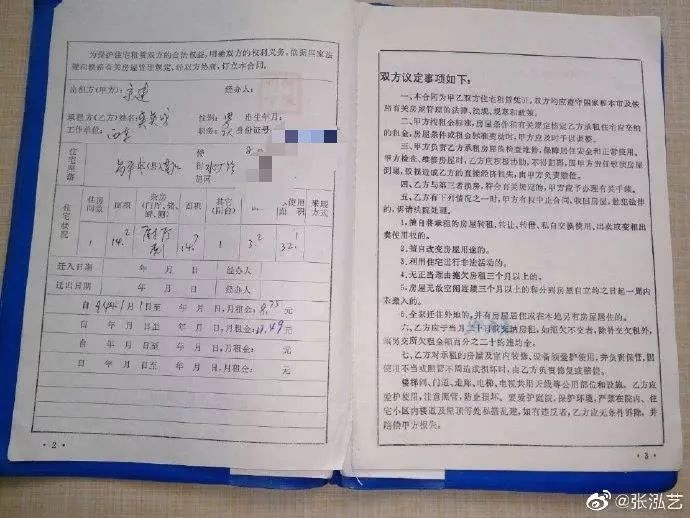 为保护住宅租赁双方的合法权益,明确双方的权利义务,依据国家法
规和铁路有关房屋管理规定,经双方协商,订立本合同。
出租方(甲方): 经办人:
承租方(乙方)姓名: 性别: 出生年月:
工作单位: 职务: 身份证号
住宅座落
楼
住宅状况
住房间数
面积
面积
其它(阳台)
使用面积
采暖方式
1 14.2 14.7 1 3.2 32.1
迁入日期 年 月 日 经办人
迁出日期 年 月 日 经办人
自 年1月1日至 年 月 日,月租金: 8.75 元
自 年 月 日至 年 月 日,月租金: 元
自 年 月 日至 年 月 日,月租金: 元
自 年 月 日至 年 月 日,月租金: 元
·2·
双方议定事项如下:
一、本合同为甲乙双方住宅租赁凭证,双方均应遵守国家和本市及铁
路有关房屋管理的法律、法规、规章和政策。
二、甲方按租金标准,房屋条件和有关规定核定乙方承租住宅应交纳
的租金,房屋条件或租金标准变动时,甲方应及时予以调整。
三、甲方负责对乙方承租房屋的检查维修,保障居住安全和正常使用。
甲方检查、维修房屋时,乙方应积极协助,不得阻挠,因甲方责任致使房屋
倒塌,毁损造成乙方的直接经济损失,由甲方负责赔偿。
四、乙方与第三者换房,符合有关规定的,甲方应予办理有关手续。
五、乙方有下列情况之一时,甲方有权中止合同,收回房屋,
的,诉请法院处理。
1、擅自将承租的房屋转租、转让、转借、私自交换使用、出卖或变相出
卖使用权的。
2、擅自改变房屋用途的。
3、利用住宅进行非法活动的。
4、无正当理由拖欠房租三个月以上的。
5、房屋无故空闲连续三个月以上的和分到房屋自立约之日起一周内
未搬入的。
6、全家迁往外地的,并有房屋居住或在本地另有房屋居住的。
六、乙方应于当月 交纳房租,如拖欠不交者,除补交欠租外,
需另交所欠租金额百分之二十的违约金。
七、乙方对承租的房屋及室内装修、设备须爱护使用,并负责保管,因
使用不当或照管不周造成损坏时,由乙方负责修复或赔偿。
楼梯间、门道、走廊、电梯、电视共用天线等公用部位和设施。乙方应
爱护使用,注意照管,防止损坏。要爱护庭院,保护环境,严禁在院内、住
宅小区内楼道及屋顶等处私搭乱建,如有违反者,乙方应无条件拆除,并
赔偿甲方损失。
·3·
@张泓艺